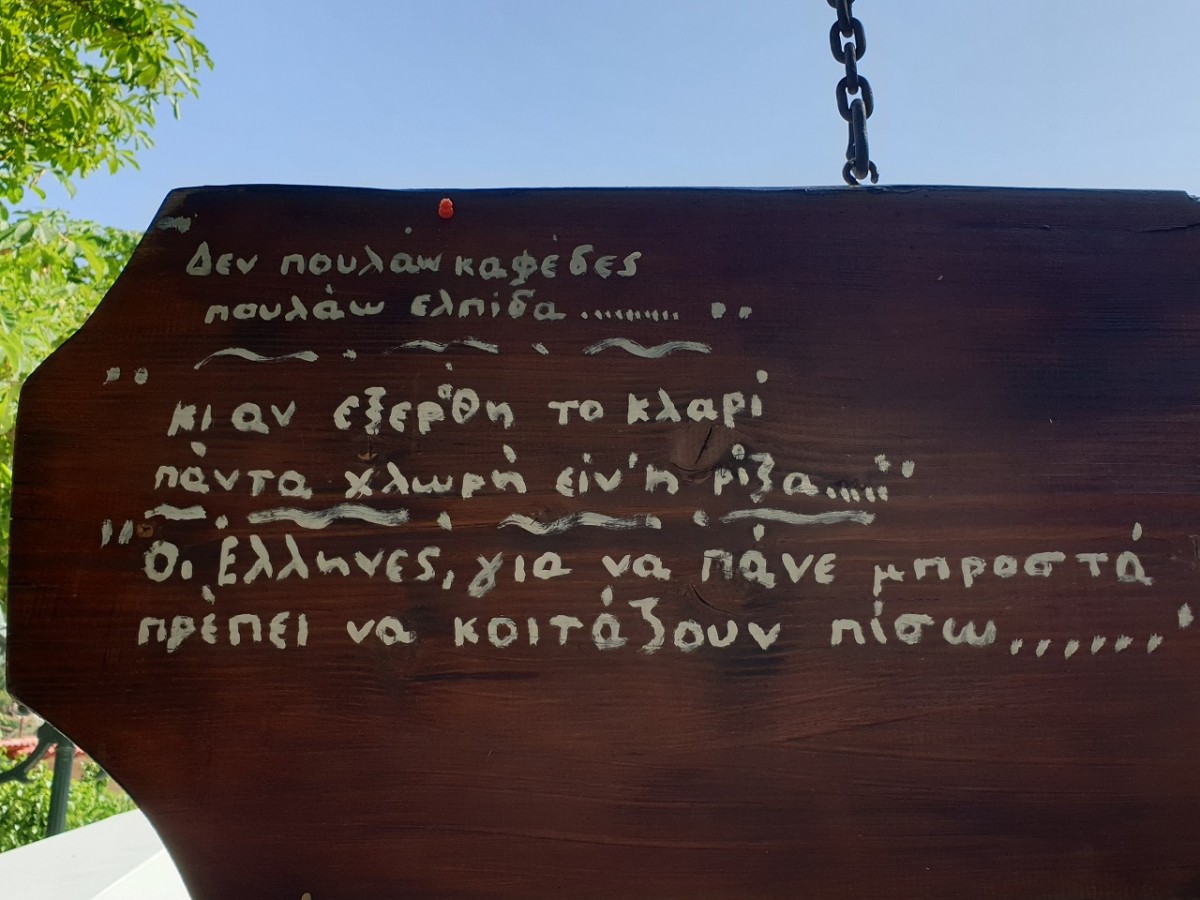 Δεν πουλάω καφέδες
πουλάω ελπίδα ................ ''
'' κι αν εξερ'θη το κλαρί
πάντα χλωρή είν' η ρίζα......''
'' Οι Έλληνες, για να πάνε μπροστά
πρέπει να κοιτάζουν πίσω.......'